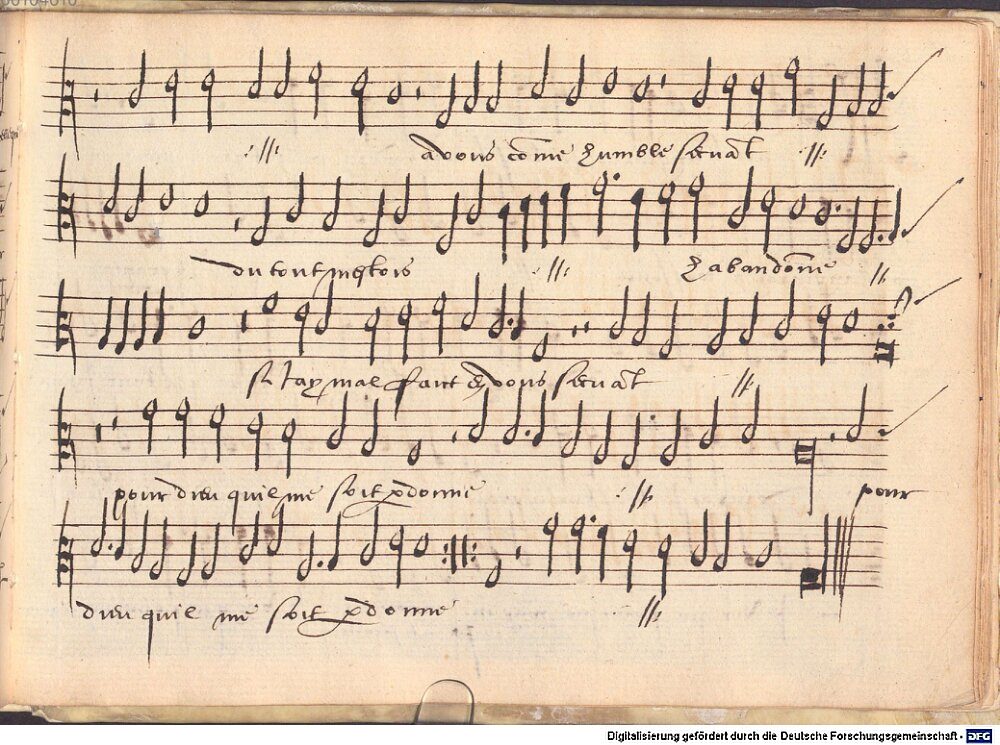 avous cōme humble servāt
du tout
habandōne
si Jay mal faict en vous servāt
pour dieu quil me soit p̱donne
pour
dieu quil me soit p̱donne
Digitalisierung gefördert durch die Deutsche Forschungsgemeinschaft - DFG